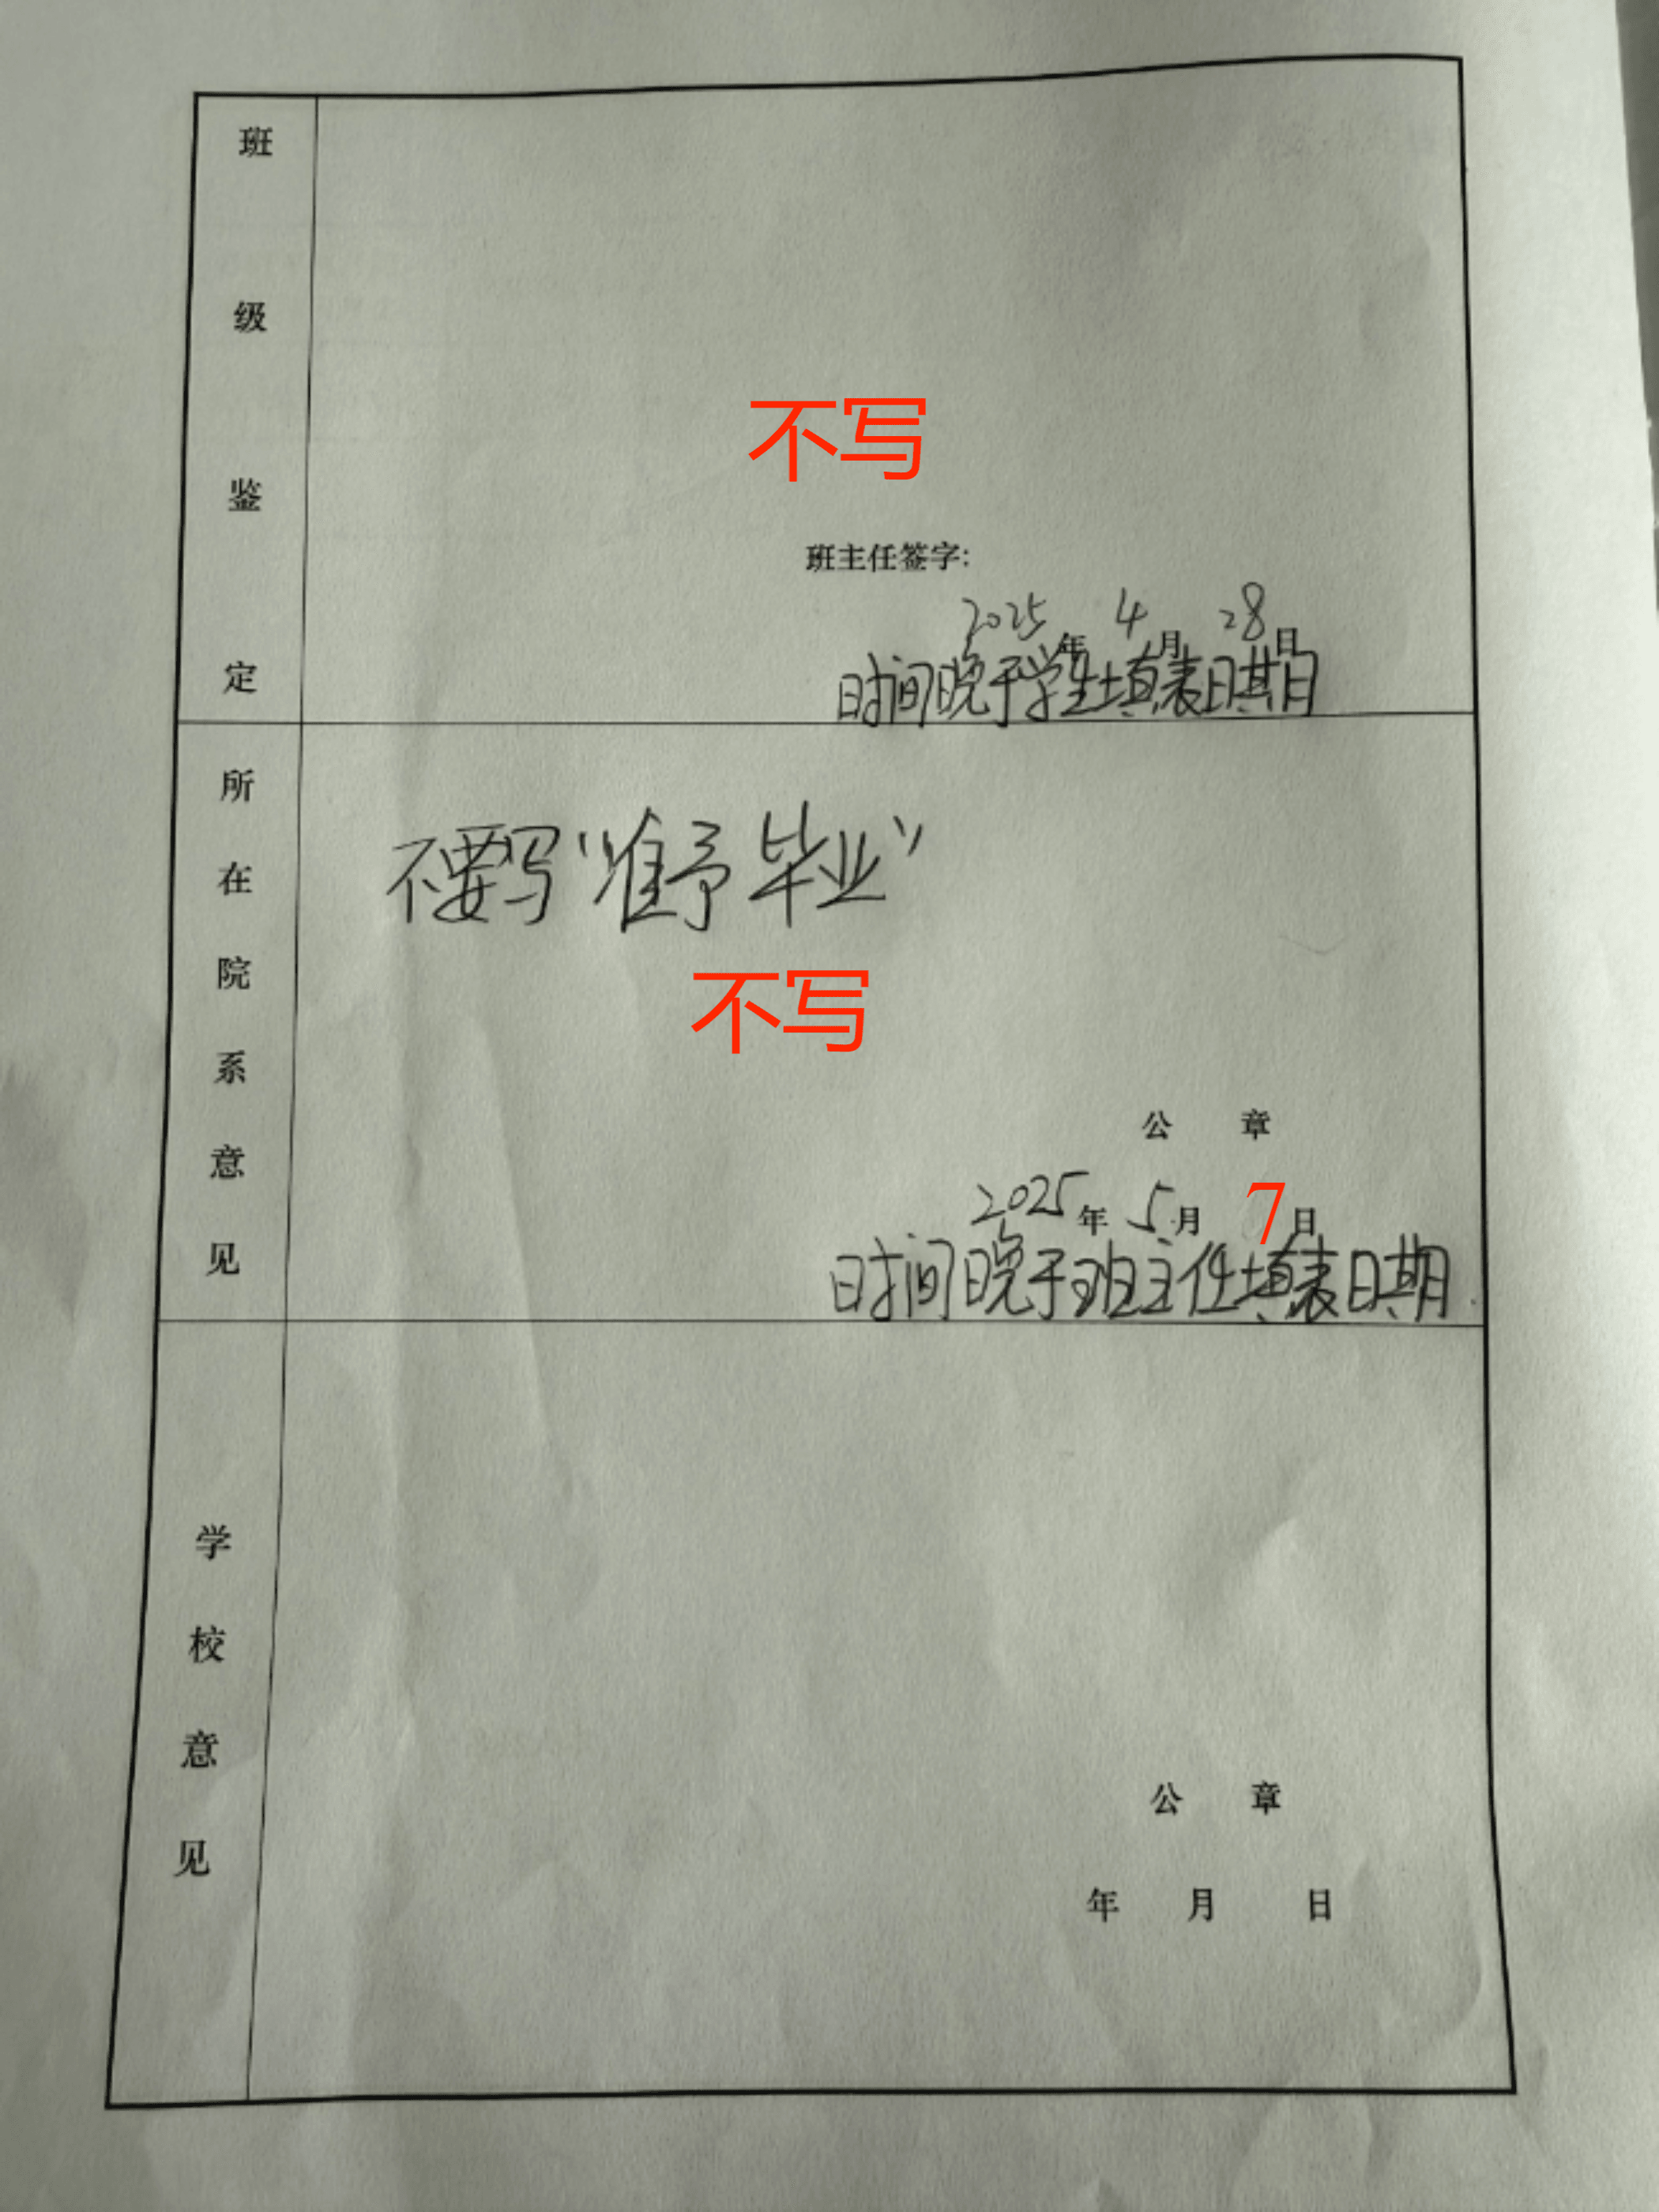 班级鉴定
不写
班主任签字：
2025年 4月 28日
时间晚于学生填表日期
所在院系意见
不要写“准予毕业”
不写
公 章
2025年 5月 7日
时间晚于班主任填表日期
学校意见
公 章
年 月 日